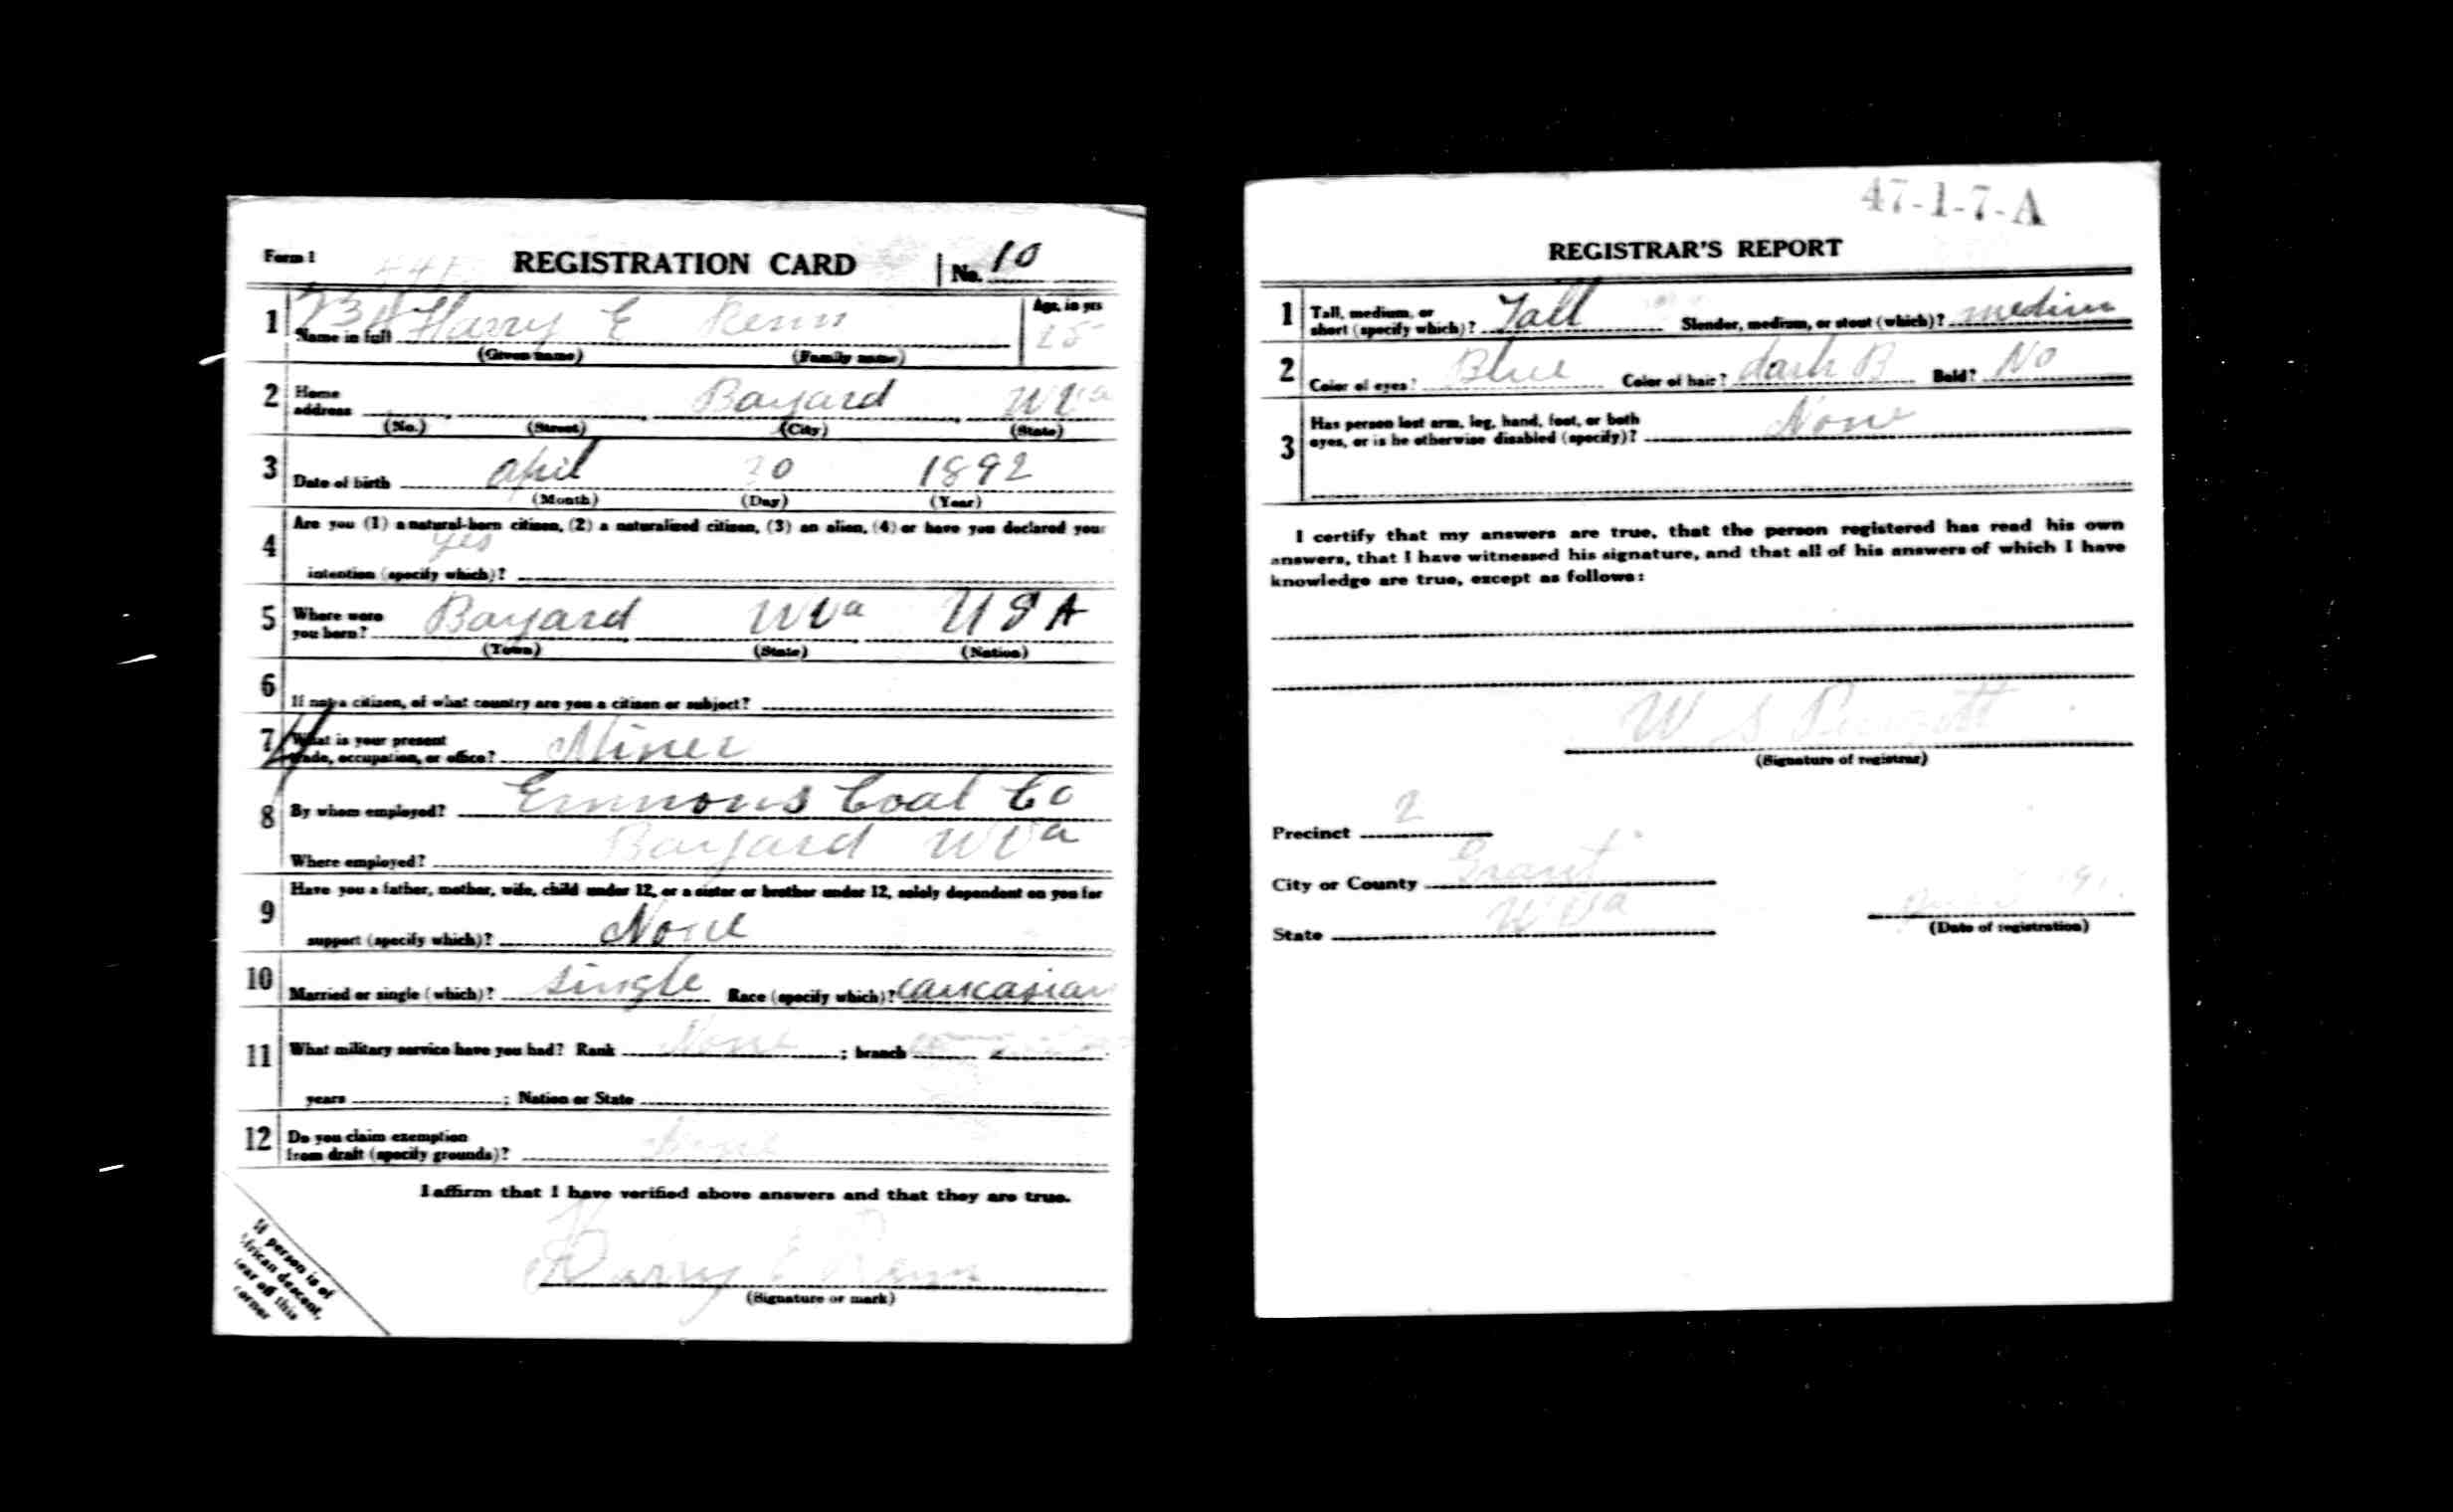 Form 1 REGISTRATION CARD No. 10
1 Name in full Harry E Renn Age, in yrs 25
(Given name) (Family name)
2 Home address Bayard WVa
(No.) (Street) (City) (State)
3 Date of birth April 1892
(Month) (Day) (Year)
4 Are you (1) a natural-born citizen, (2) a naturalized citizen, (3) an alien, (4) or have you declared your
yes
intention (specify which)?
5 Where were you born? Bayard WVa USA
(Town) (State) (Nation)
6 If not a citizen, of what country are you a citizen or subject?
7 What is your present
trade, occupation, or office? Miner
8 By whom employed? Emmons Coal Co
Where employed? Bayard WVa
9 Have you a father, mother, wife, child under 12, or a sister or brother under 12, solely dependent on you for
support (specify which)? None
10 Married or single (which)? single Race (specify which)? caucasian
11 What military service have you had? Rank None ; branch
years ; Nation or State
12 Do you claim exemption
from draft (specify grounds)?
I affirm that I have verified above answers and that they are true.
Harry E Renn
(Signature or mark)
If person is of
African descent,
tear off this
corner
47-1-7-A
REGISTRAR'S REPORT
1 Tall, medium, or
short (specify which)? Tall Slender, medium, or stout (which)? medium
2 Color of eyes? Blue Color of hair? dark B Bald? No
3 Has person lost arm, leg, hand, foot, or both
eyes, or is he otherwise disabled (specify)? None
I certify that my answers are true, that the person registered has read his own
answers, that I have witnessed his signature, and that all of his answers of which I have
knowledge are true, except as follows:
W S
(Signature of registrar)
Precinct 2
City or County Grant
State WVa
(Date of registration)